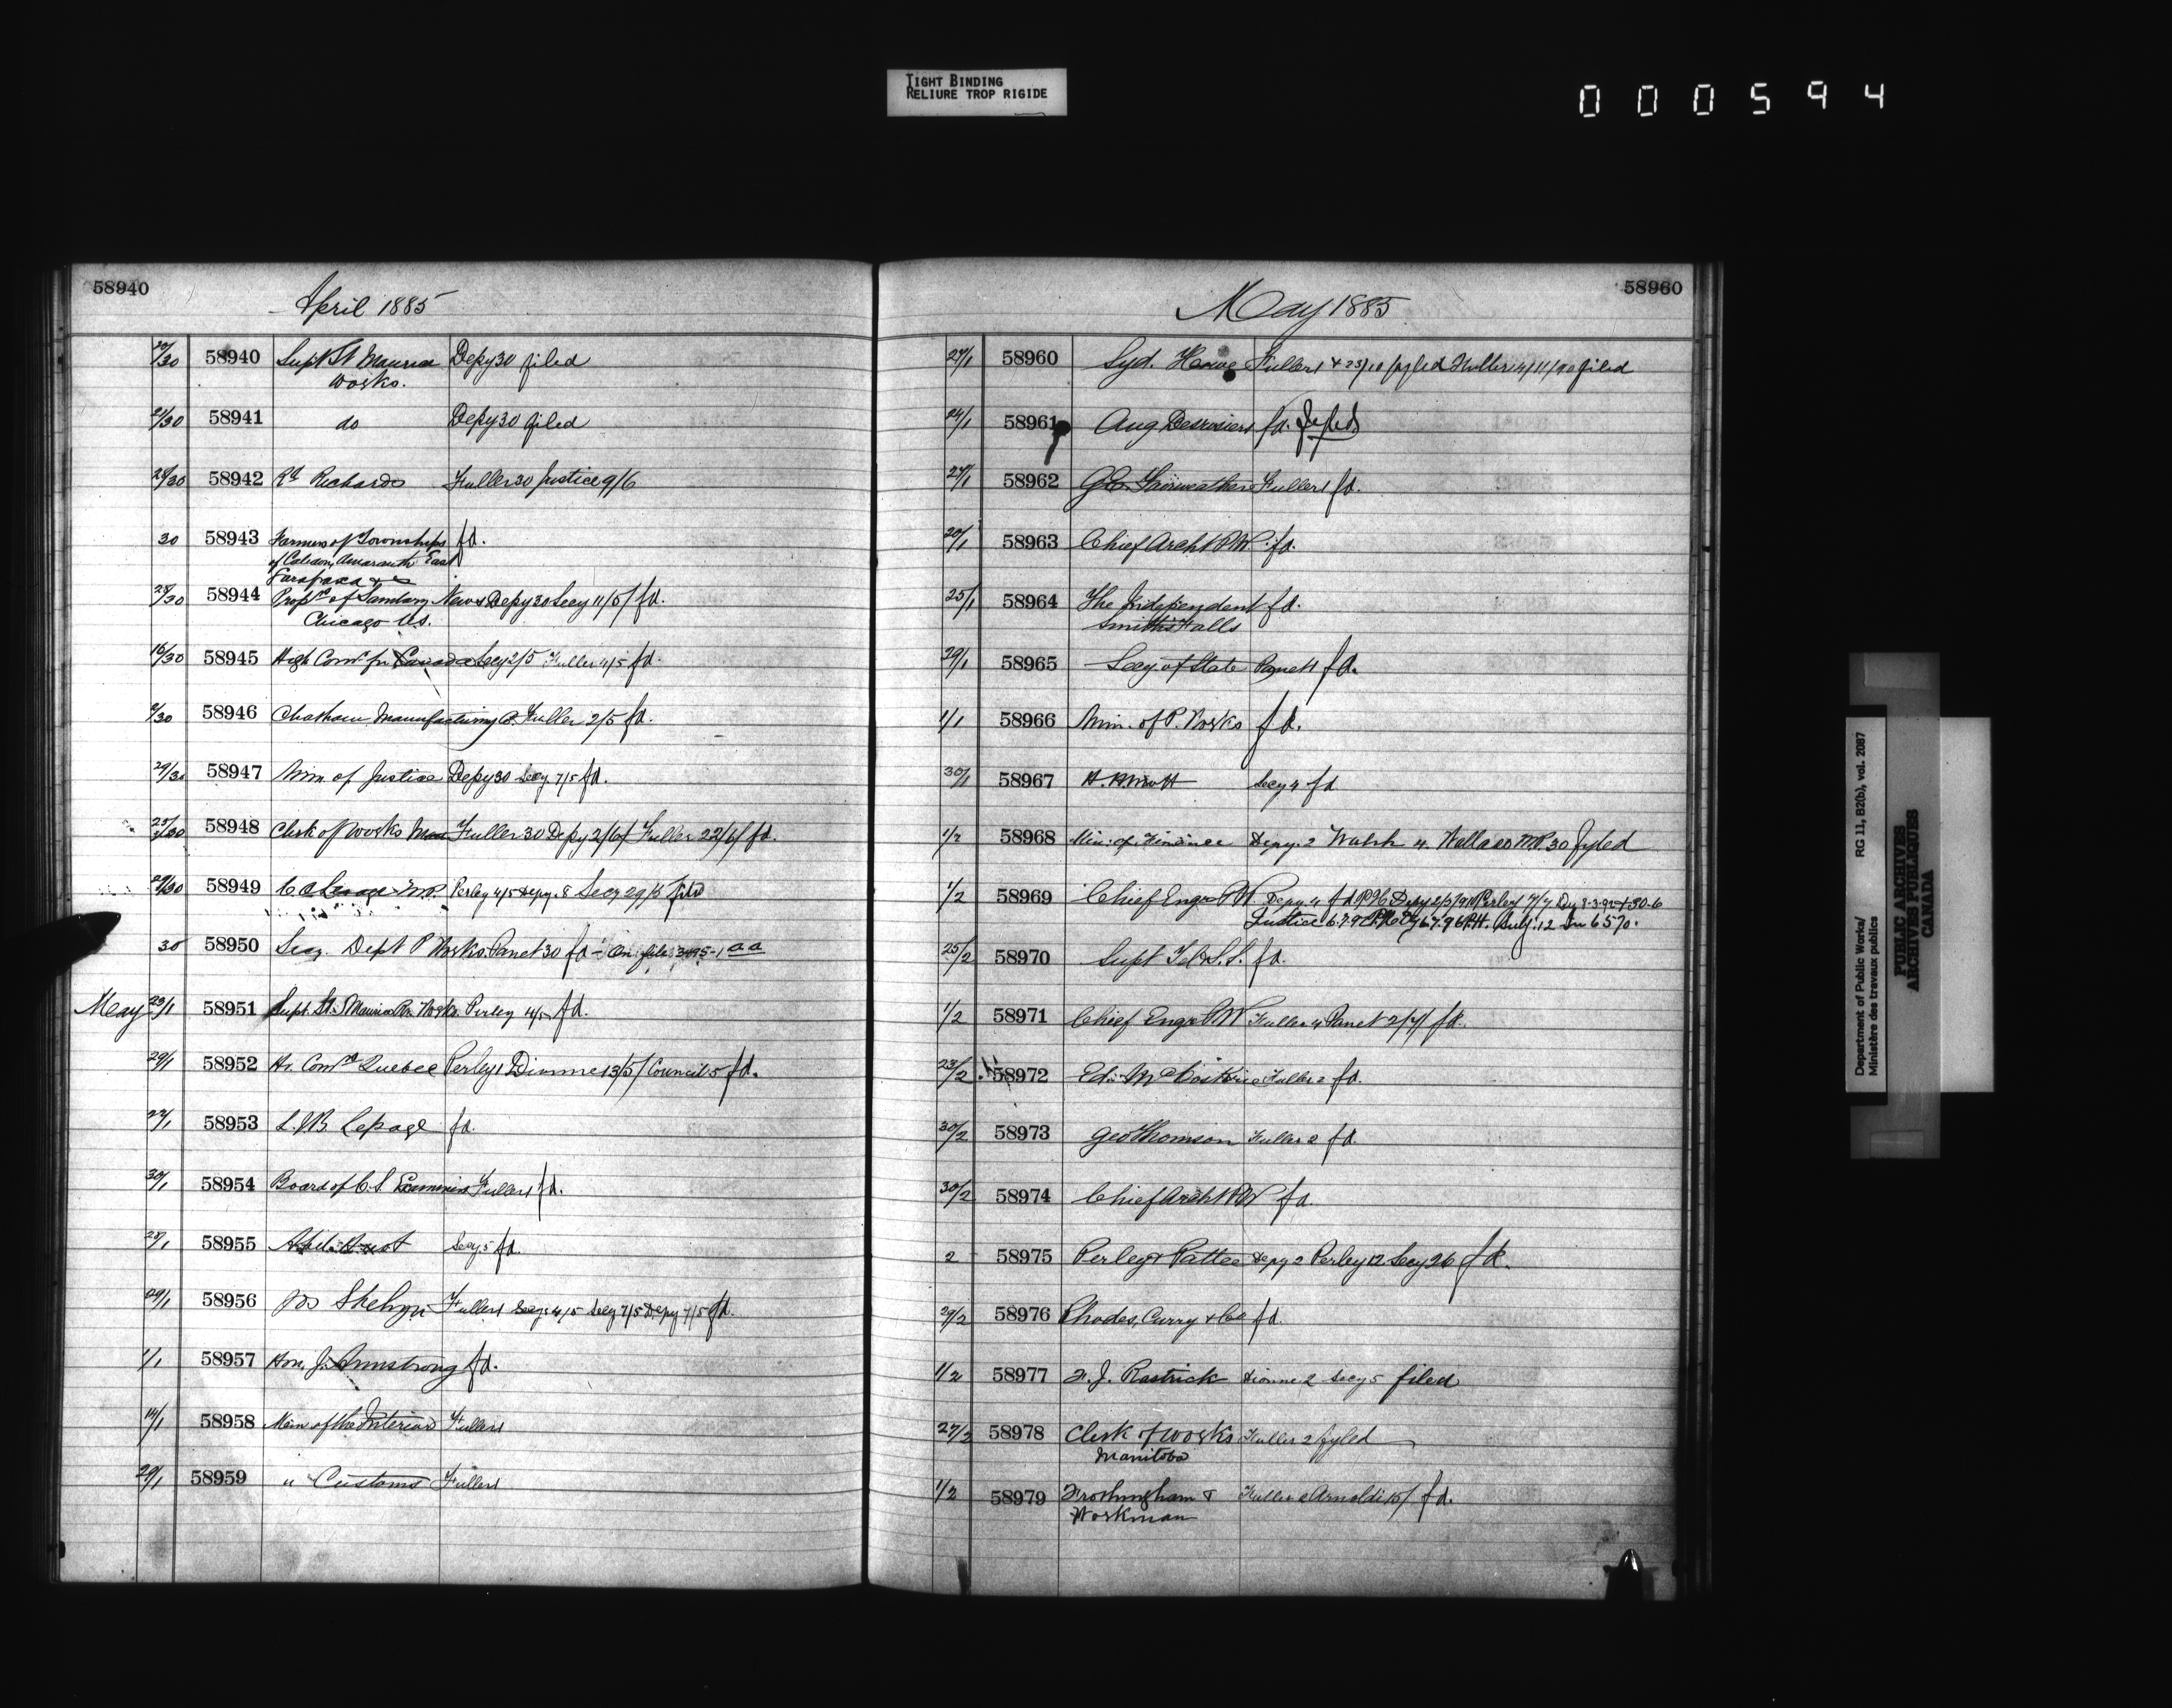 TIGHT BINDING
RELIURE TROP RIGIDE
000594
58940
April 1885
20/30 58940 Supt St Maurice Depy 30 filed
Works.
21/30 58941 do Depy 30 filed
28/30 58942 Rd Richards Fuller 30 Justice 9/6
30 58943 Farmers of Townships fd.
of Caledon, Amaranth East
Garafraxa &
28/30 58944 Propr of Sanitary News Depy 30 Secy 11/5/ fd.
Chicago U.S.
16/30 58945 High Comr for Canada Secy 2/5 Fuller 4/5 fd.
58946 Chatham Manufacturing Co. Fuller 2/5 fd.
29/30 58947 Min. of Justice Depy 30 Secy 7/5 fd.
58948 Clerk of Works Fuller 30 Depy 2/6/ Fuller 22/6/ fd.
29/30 58949 M.P. Perley 4/5 Depy. 8 Secy 29/5 filed
30 58950 Secy. Dept P Works. Panet 30 fd - On file 3495-1 aa
May 58951 Supt. St. Maurice Rr. Works. Perley 4/5 fd.
29/1 58952 Hr. Comrs Quebec Perley 1 Dionne 13/5/ Council 5 fd.
27/1 58953 L.J.B. Lepage fd.
30/1 58954 Board of C.S. Examiners Fuller 1 fd.
28/1 58955 Secy 5 fd.
29/1 58956 Jos Shehyn Fuller 1 Secy 4/5 Secy 7/5 Depy 7/5 fd.
1/1 58957 Hon. J. Armstrong fd.
14/1 58958 Min of the Interior Fuller 1
29/1 58959 " Customs Fuller 1
58960
May 1885
27/1 58960 Syd. Howe Fuller 1 & 23/10 fyled Fuller 14/11/90 filed
24/1 58961 Aug Desrosiers fd. fyled
27/1 58962 G.E. Fairweather Fuller 1 fd.
20/1 58963 Chief Archt P.W. fd.
25/1 58964 The Independent fd.
Smith's Falls
29/1 58965 Secy. of State Panet 1 fd.
1/1 58966 Min. of P. Works fd.
30/1 58967 H. Secy 4 fd
1/2 58968 Min: of Finance Depy. 2 Walsh 4. Wallace M.P. 30 fyled
1/2 58969 Chief Engr P.W. Depy 4 fd Perley 7/7
Justice
25/2 58970 Supt Tel. S.S. fd.
1/2 58971 Chief Engr PW Fuller 4 Panet 2/7/ fd.
23/2 58972 Ed: Fuller 2 fd.
30/2 58973 Geo Thomson Fuller 2 fd.
30/2 58974 Chief Archt P.W fd.
2 58975 Perley & Pattee Depy 2 Perley 12 Secy 26 fd.
29/2 58976 Rhodes, Curry & Co fd.
1/2 58977 F. J. Rastrick Dionne 2 Secy 5 filed
27/2 58978 Clerk of Works Fuller 2 fyled
Manitoba
1/2 58979 Frothingham & Fuller 2 Arnoldi 15/ fd.
Workman
Department of Public Works/ RG 11, B2(b), vol. 2087
Ministère des travaux publics
PUBLIC ARCHIVES
ARCHIVES PUBLIQUES
CANADA